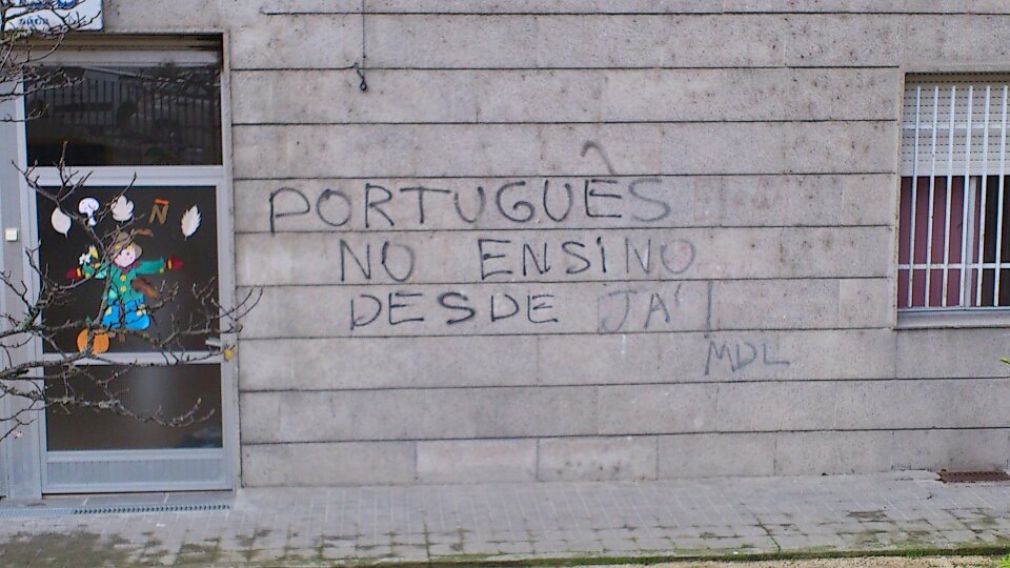 PORTUGUÊS
NO ENSINO
DESDE JÁ!
MDL
Ñ